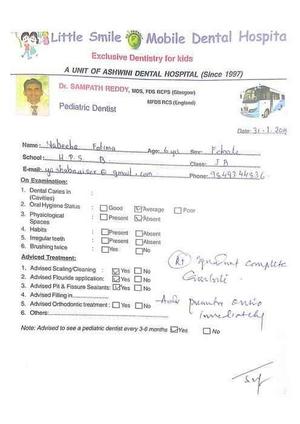 Little Smile Mobile Dental Hospita
Exclusive Dentistry for kids
A UNIT OF ASHWINI DENTAL HOSPITAL (Since 1997)
Dr. SAMPATH REDDY, MDS, FDS RCPS (Glasgow)
MFDS RCS (England)
Pediatric Dentist
Date: 31-1-2019
Name: Fatima Age: 6 yrs Sex: Female
School: H.P.S. B Class:
E-mail: @gmail.com Phone:
On Examination:
1. Dental Caries in :
(Cavities)
2. Oral Hygiene Status : Good Average Poor
3. Physiological : Present Absent
Spaces
4. Habits : Present Absent
5. Irregular teeth : Present Absent
6. Brushing twice : Yes No
Adviced Treatment:
1. Advised Scaling/Cleaning : Yes No
2. Advised Fluoride application: Yes No
3. Advised Pit & Fissure Sealants: Yes No
4. Advised Filling in
5. Advised Orthodontic treatment : Yes No
6. Others:
complete
immediately
Note: Advised to see a pediatric dentist every 3-6 months Yes No